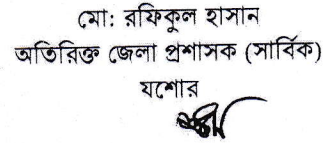 মো: রফিকুল হাসান
অতিরিক্ত জেলা প্রশাসক (সার্বিক)
যশোর